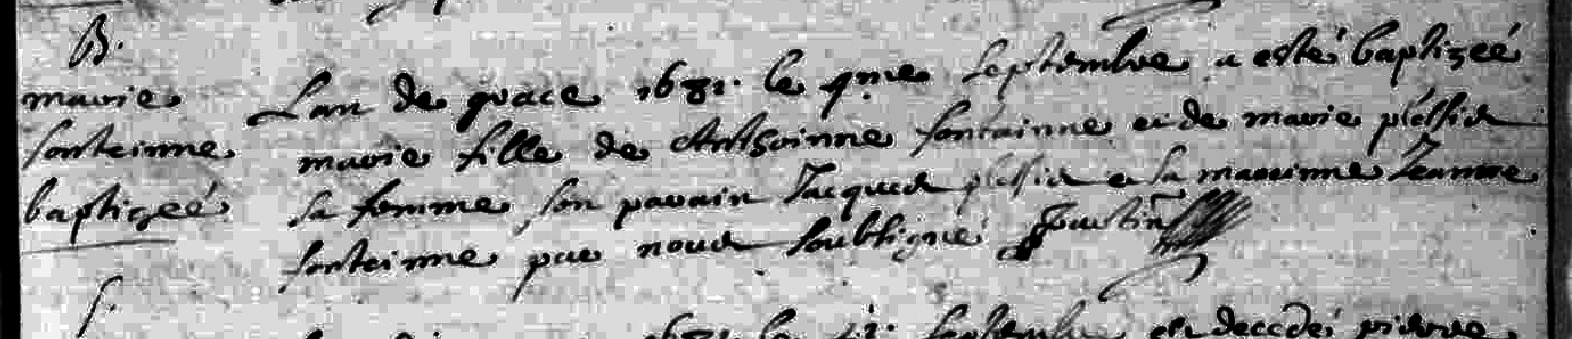 B.
marie
fonteinne
baptizeé
Lan de grace 1681. le 4me septembre a esté baptizeé
marie fille de Anthoinne fontainne et de marie plessis
sa femme son parain Jacques plessis et sa marainne Jeanne
fonteinne par nous soubsigné
S.
1681 le septembre est decedé pierre